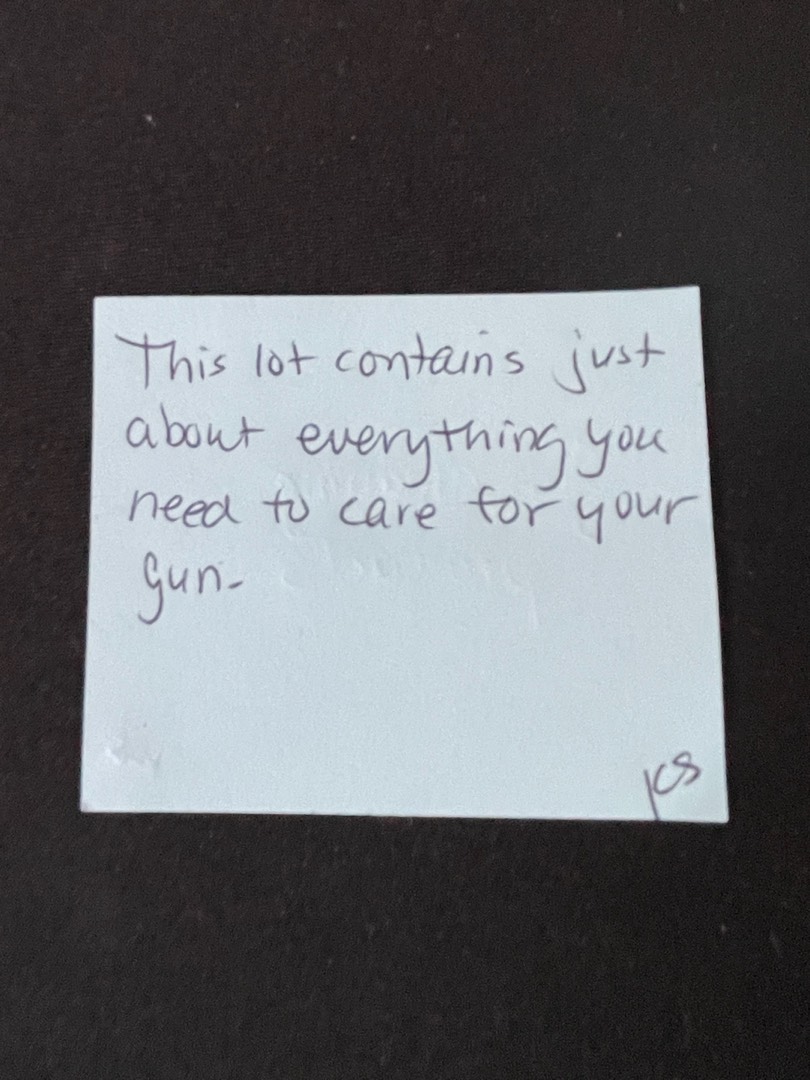 This lot contains just
about everything you
need to care for your
gun-
KS